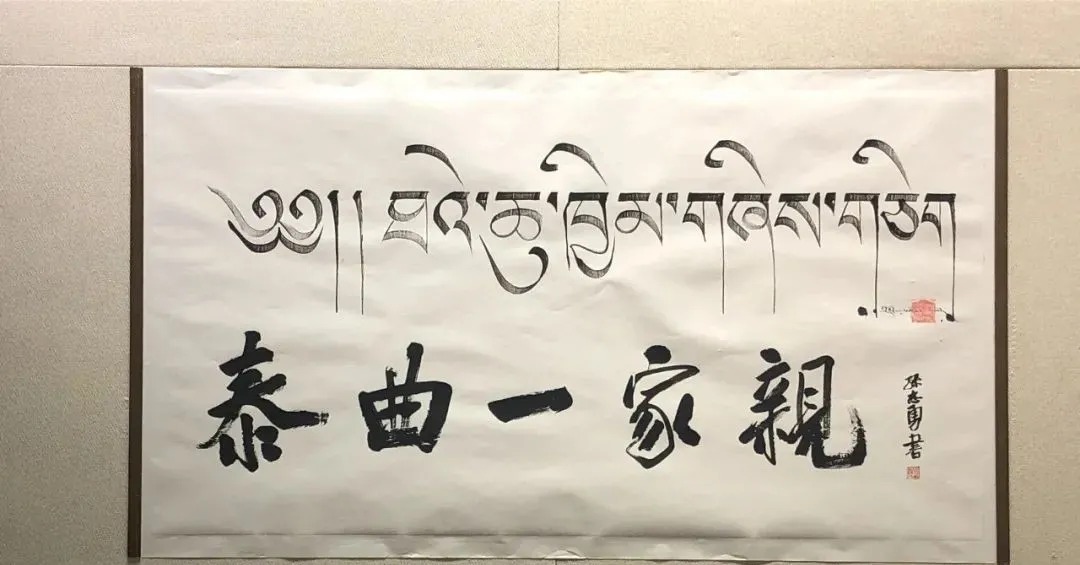 ༄༅།། ཐའེ་ཆུ་ཁྱིམ་གཞིས་གཅིག
泰曲一家親
孫志勇書